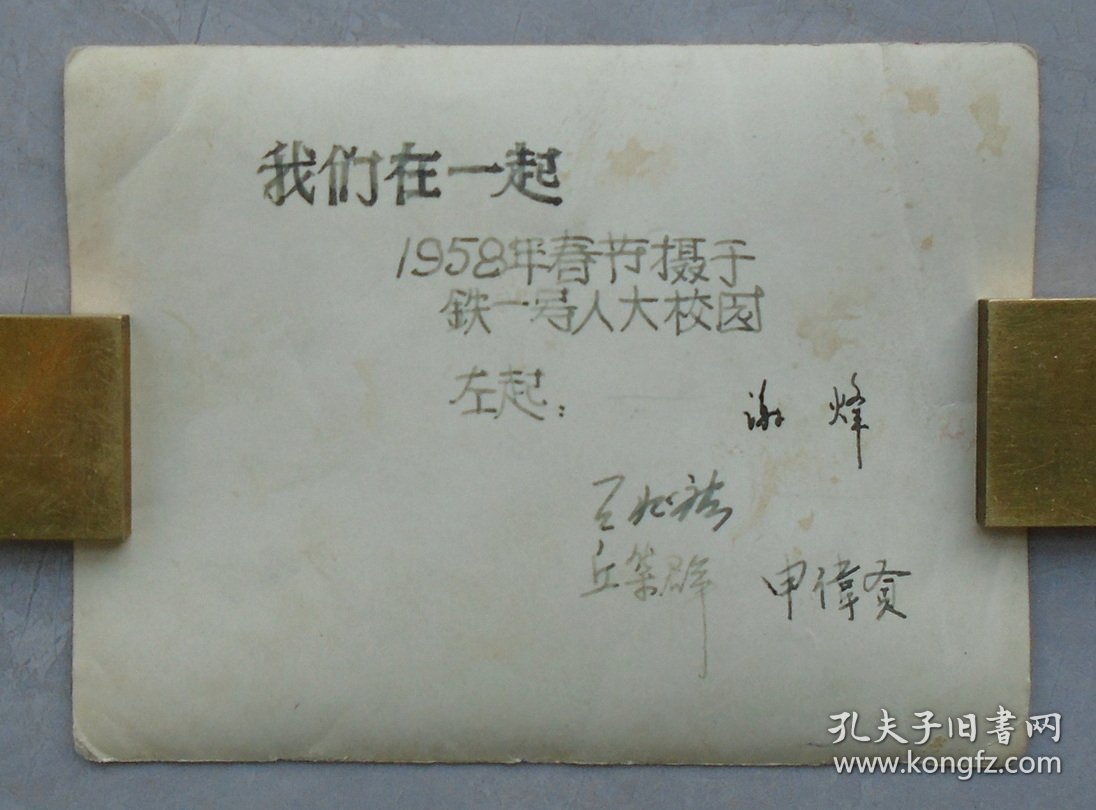 我们在一起
1958年春节摄于
鉄一号人大校园
左起：
谢烽
丘第群 申偉贡
孔夫子旧書网
www.kongfz.com